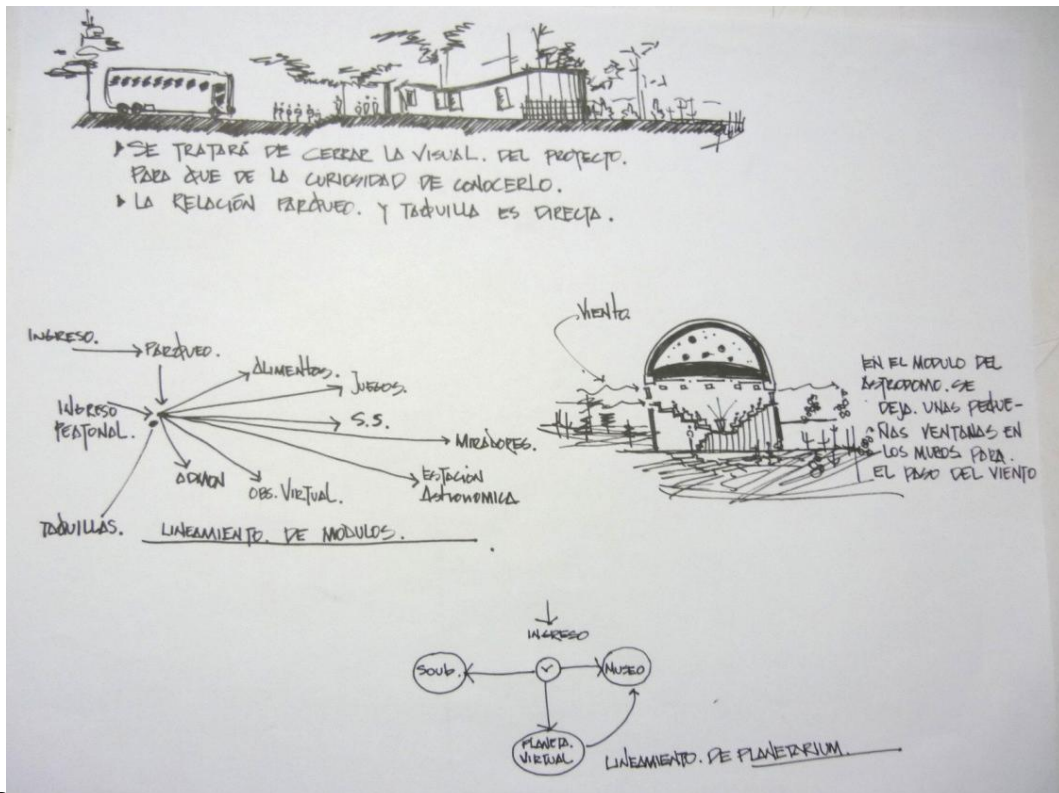 ▶ SE TRATARÁ DE CERRAR LA VISUAL. DEL PROYECTO.
PARA QUE DE LA CURIOSIDAD DE CONOCERLO.
▶ LA RELACIÓN PARQUEO. Y TAQUILLA ES DIRECTA.
INGRESO.
PARQUEO.
INGRESO
PEATONAL.
ALIMENTOS.
JUEGOS.
S.S.
MIRADORES.
ESTACIÓN
ASTRONOMICA
OBS. VIRTUAL.
ADMON
TAQUILLAS.
LINEAMIENTO. DE MODULOS.
VIENTO.
EN EL MODULO DEL
ASTRODOMO. SE
DEJA. UNAS PEQUE-
ÑAS VENTANAS EN
LOS MUROS PARA.
EL PASO DEL VIENTO
INGRESO
SOUB.
MUSEO
PLANETA.
VIRTUAL
LINEAMIENTO. DE PLANETARIUM.